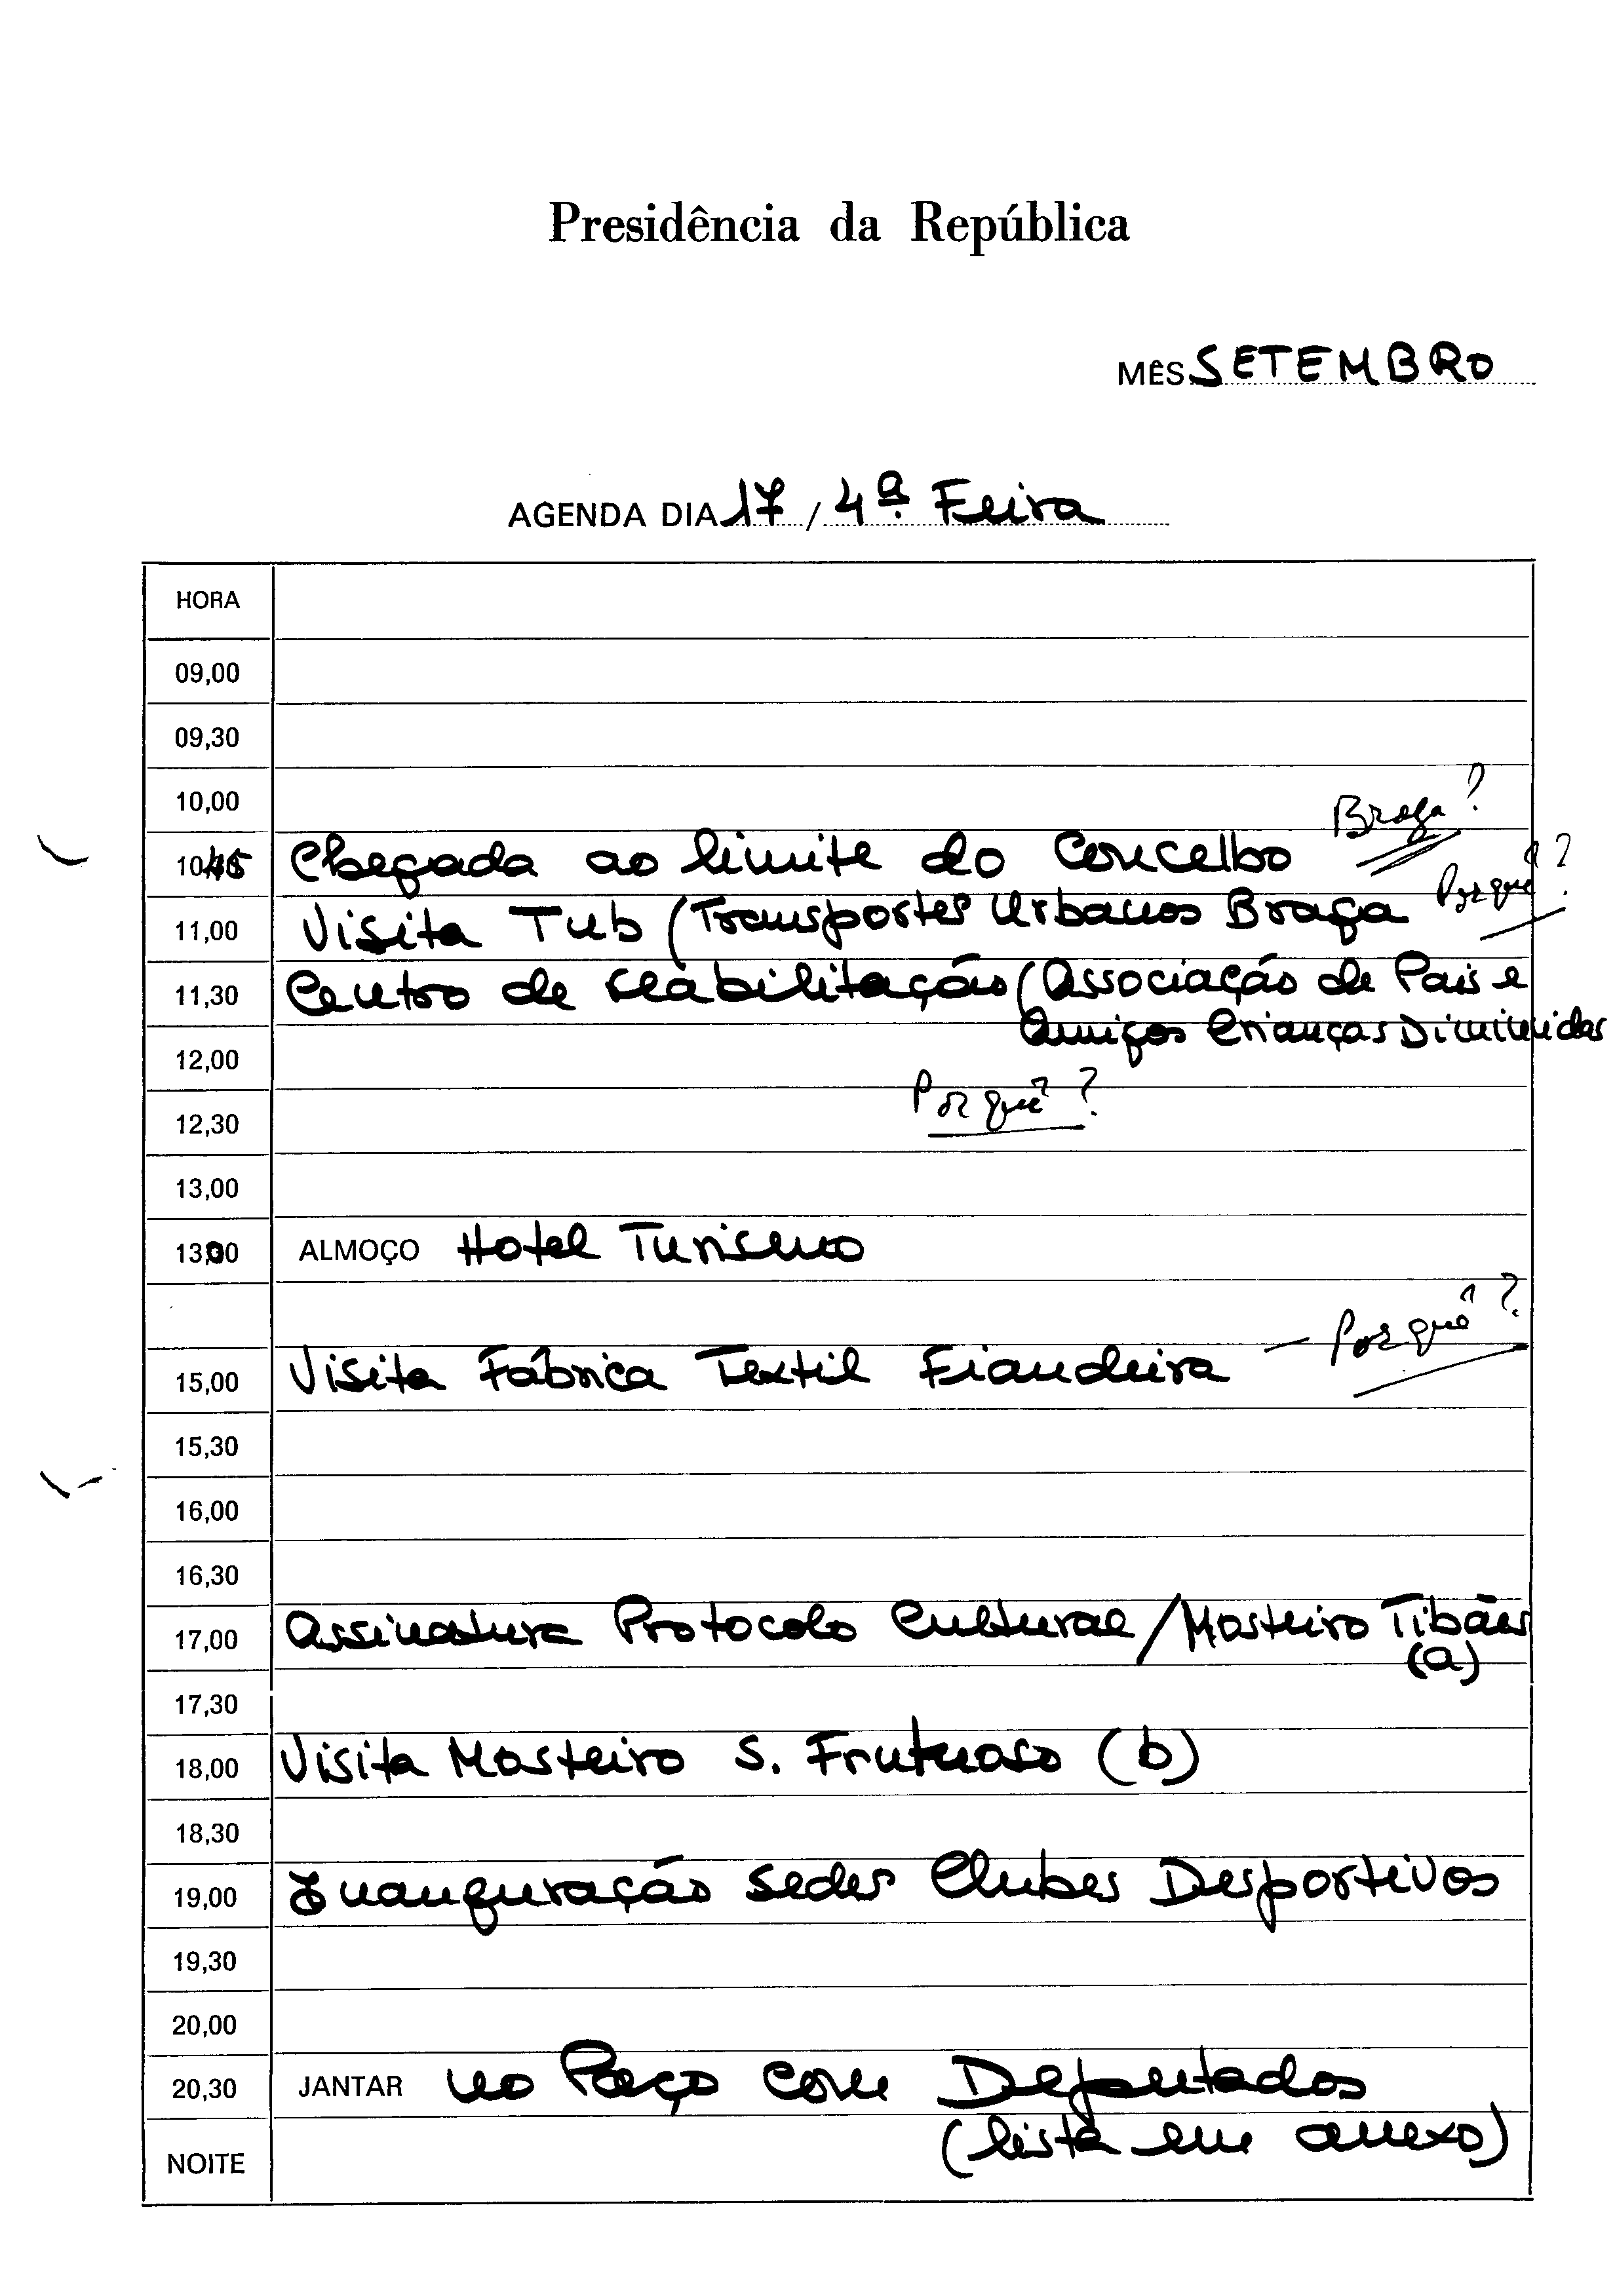 Presidência da República
MÊS SETEMBRO
AGENDA DIA 17 / 4ª Feira
HORA
09,00
09,30
10,00 Braga?
10,45 Chegada ao limite do Concelho
Porquê?
11,00 Visita Tub (Transportes Urbanos Braga
11,30 Centro de reabilitação (Associação de Pais e
Amigos Crianças Diminuidas
12,00
Porquê?
12,30
13,00
13,00 ALMOÇO Hotel Turismo
Porquê?
15,00 Visita Fábrica Textil Fiandeira –
15,30
16,00
16,30
17,00 Assinatura Protocolo Cultural / Mosteiro Tibães
(a)
17,30
18,00 Visita Mosteiro S. Frutuoso (b)
18,30
19,00 Inauguração sedes Clubes Desportivos
19,30
20,00
20,30 JANTAR no Paço com Deputados
(lista em anexo)
NOITE